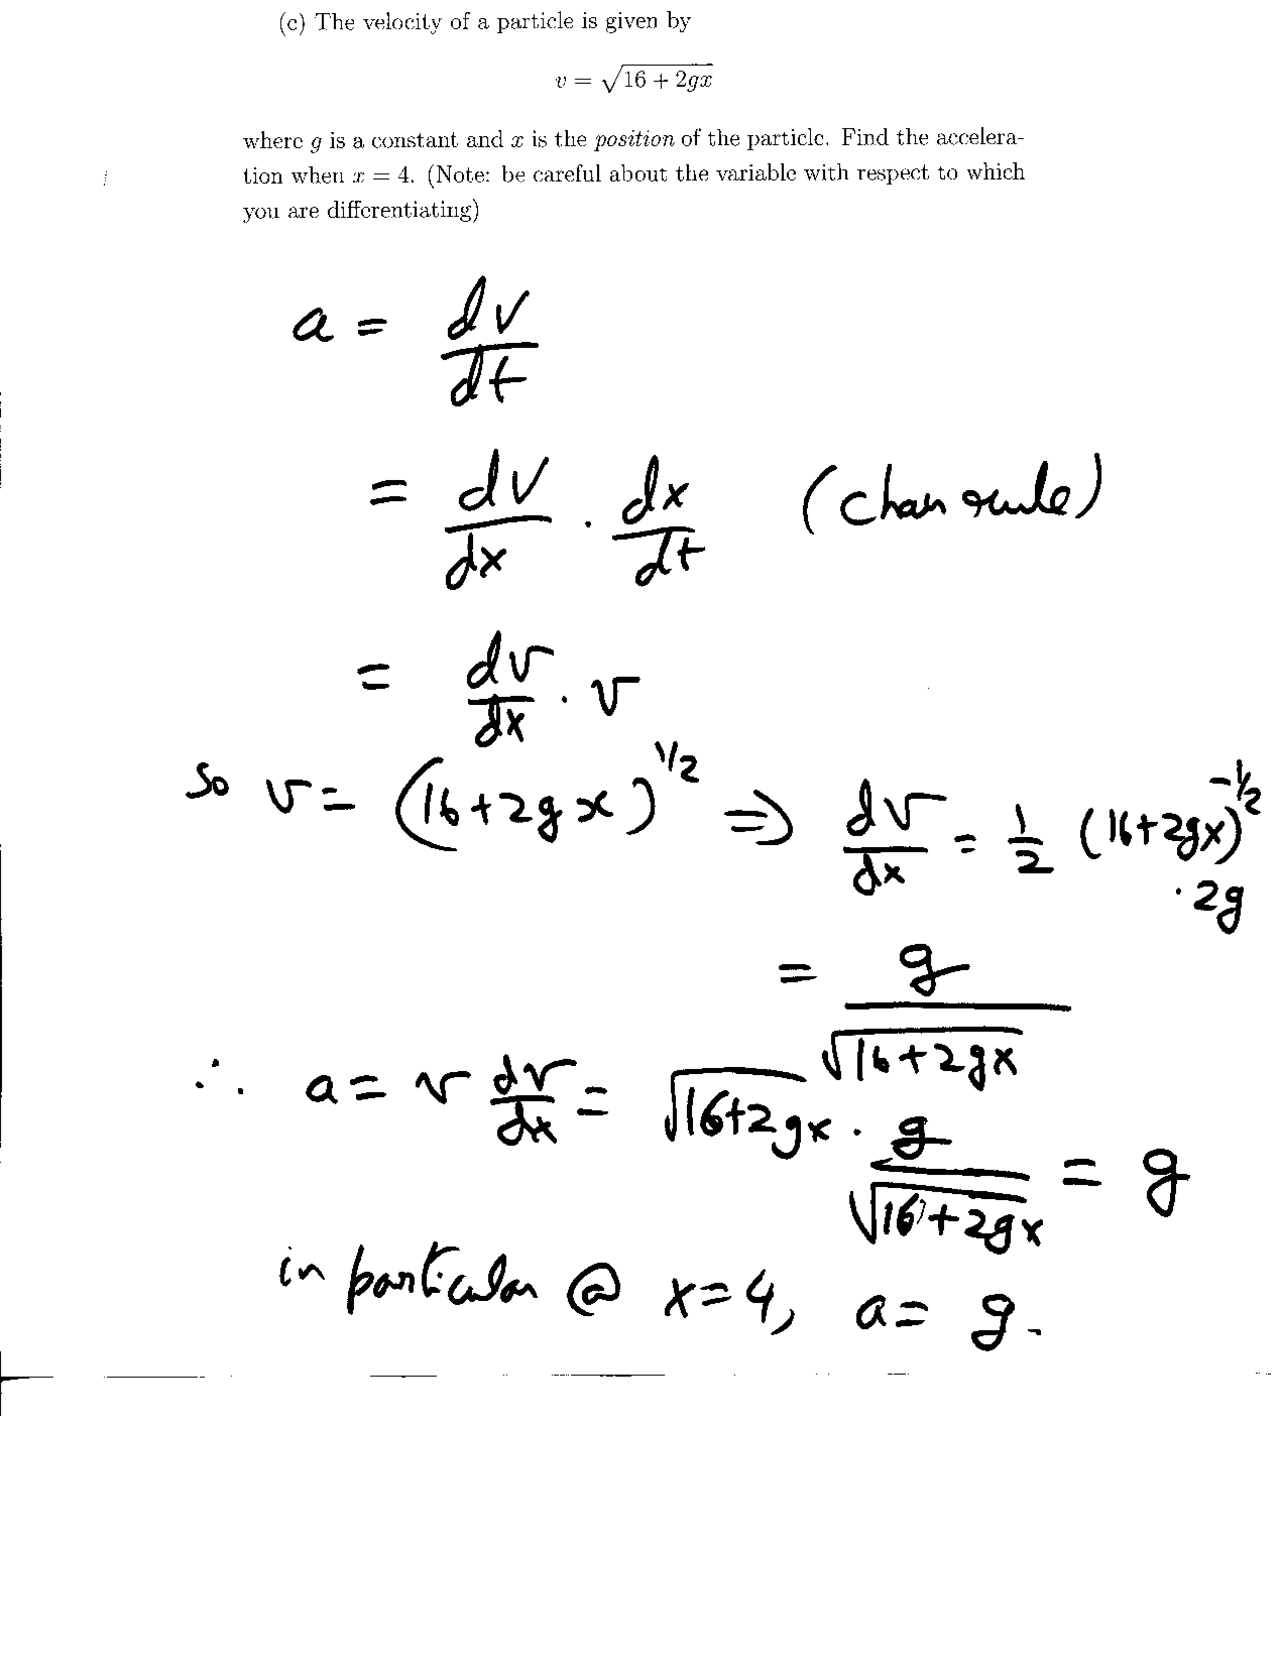 (c) The velocity of a particle is given by
v = √(16 + 2gx)
where g is a constant and x is the position of the particle. Find the accelera-
tion when x = 4. (Note: be careful about the variable with respect to which
you are differentiating)
a = dv/dt
= dv/dx · dx/dt (chain rule)
= dv/dx · v
So v = (16+2gx)^1/2 ⇒ dv/dx = 1/2 (16+2gx)^-1/2
· 2g
= g/√(16+2gx)
∴ a = v dv/dx = √(16+2gx) · g/√(16+2gx) = g
in particular @ x=4, a = g.